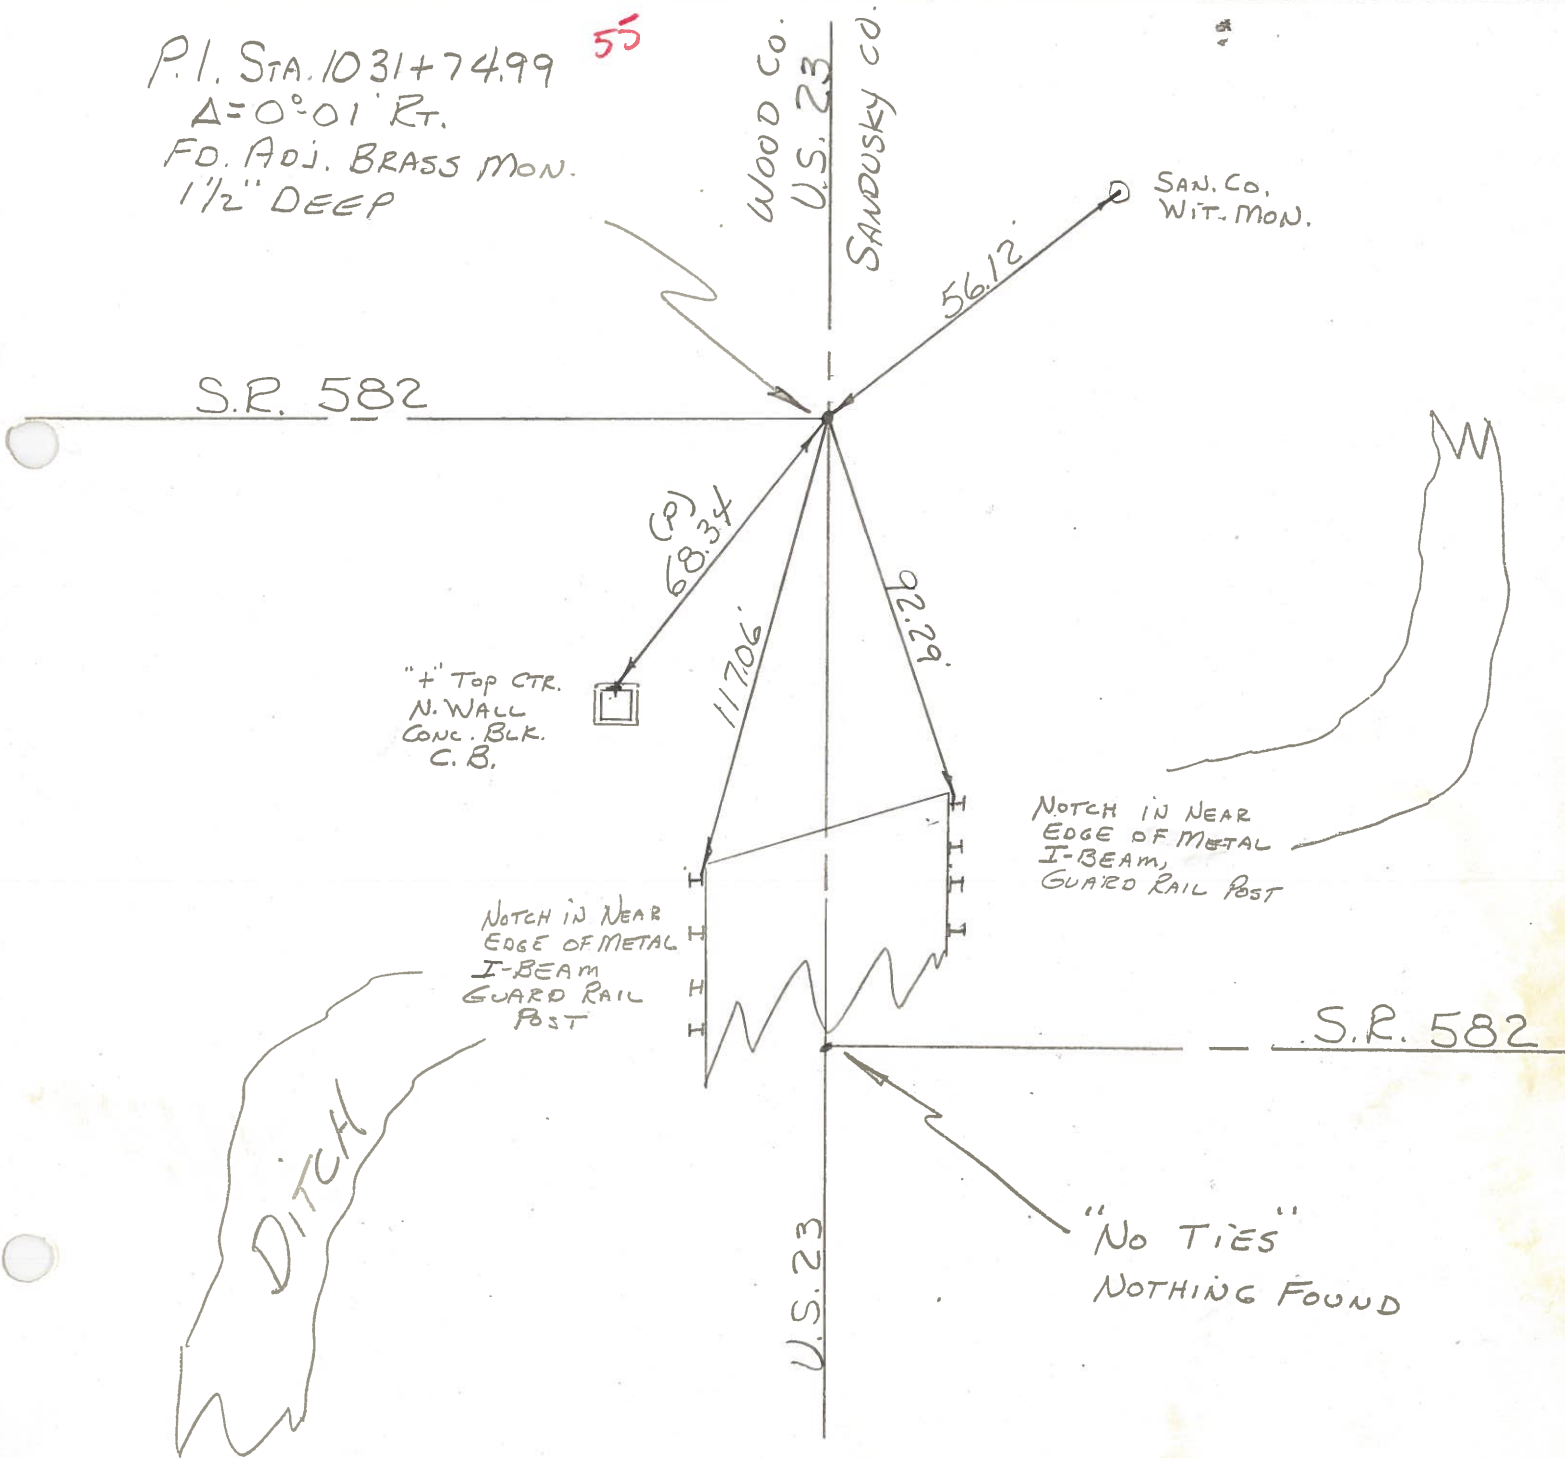 P.I. STA. 1031+74.99
Δ=0°-01' RT.
FD. ADJ. BRASS MON.
1 1/2" DEEP
55
WOOD CO.
U.S. 23
SANDUSKY CO.
SAN. CO.
WIT. MON.
56.12'
S.R. 582
(P)
68.34
117.06'
92.26'
"+" TOP CTR.
N. WALL
CONC. BLK.
C.B.
NOTCH IN NEAR
EDGE OF METAL
I-BEAM,
GUARD RAIL POST
NOTCH IN NEAR
EDGE OF METAL
I-BEAM
GUARD RAIL
POST
S.R. 582
DITCH
U.S. 23
"NO TIES"
NOTHING FOUND